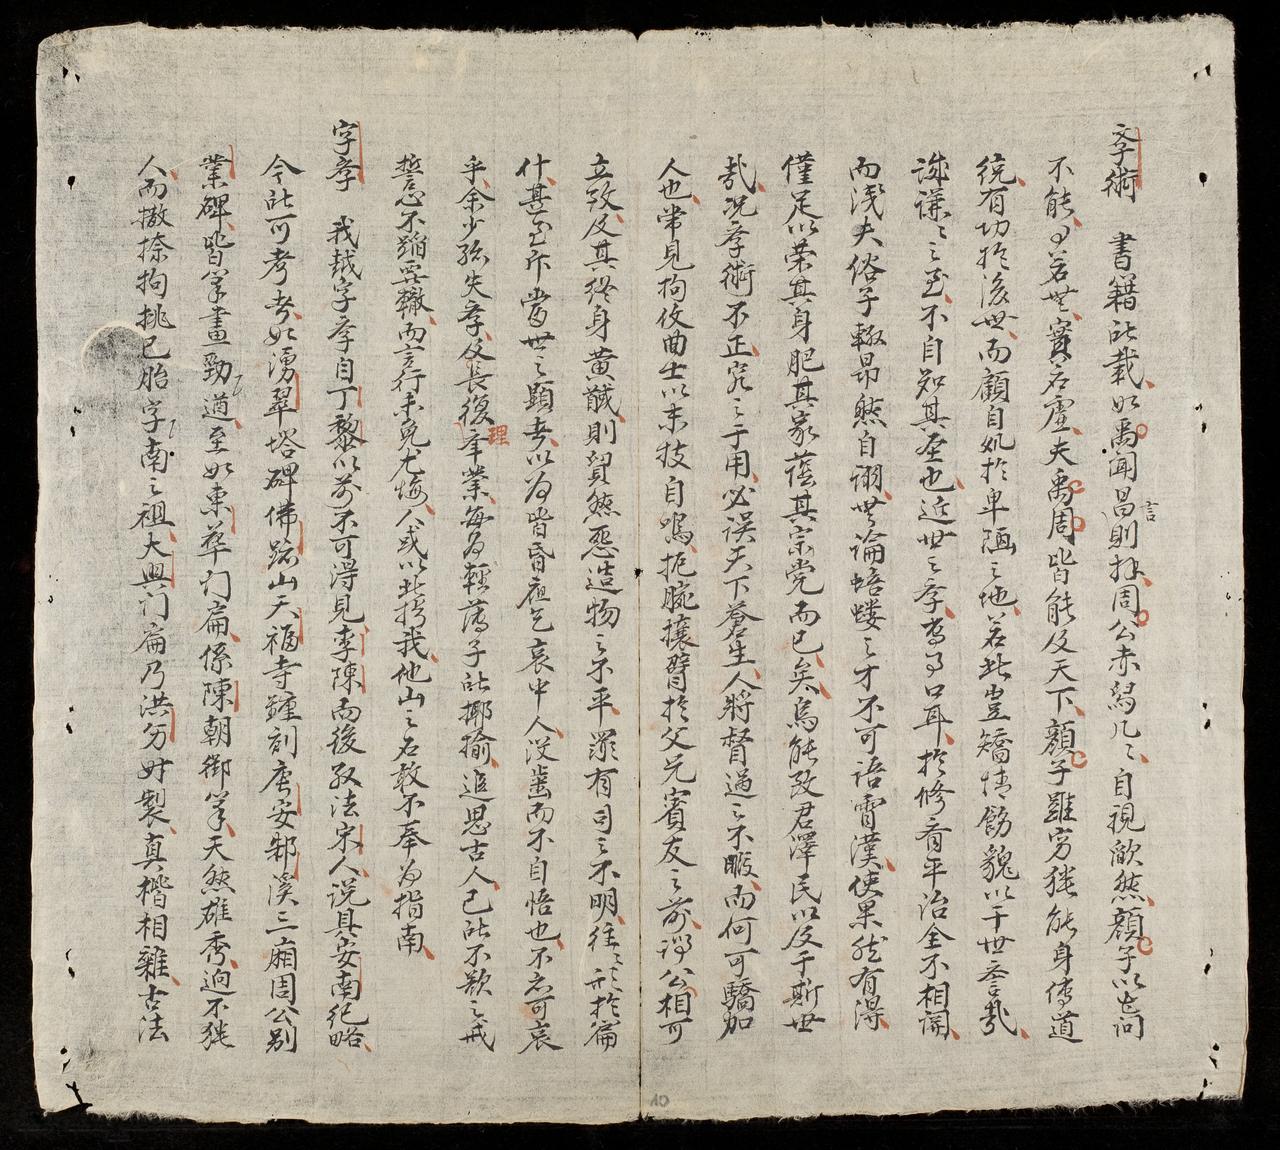 學術　書籍所載如禹聞昌言則拜周公赤舄几〻自視歉然顏子以能問
不能有若無實若虛夫禹周皆能及天下顏子雖窮猶能身傳道
統有功於後世而顧自処於卑陋之地若此豈矯情飾貌以干世誉哉
誠謙〻之至不自知其圣也近世之學為了口耳於修齊平治全不相関
而淺夫俗子輙昂然自詡無論蟾螻之才不可語霄漢使果能有得
僅足以荣其身肥其家蔭其宗党而已矣烏能致君澤民以及于斯世
哉況學術不正究之于用必誤天下蒼生人將督過之不暇而何可驕加
人也常見拘攵曲士以末技自鳴扼腕攘臂於父兄賓友之前謂公相可
立致及其終身黄馘則貿然惡造物之不平詈有司之不明徃〻形於篇
什甚至斥當世之顯者以為皆昏夜乞哀中人没齒而不自悟也不亦可哀
乎余少孤失學及長復理舉業每為輕薄子所揶揄追思古人己所不欲之戒
誓志不蹈覂轍而言行未免尤悔人或以此指我他山之石敢不奉為指南
字學　我越字學自丁黎以前不可得見李陳而後効法宋人說具安南紀略
今所可考者如湧翠塔碑佛跡山天福寺鐘刻唐安鄚溪三廂周公别
業碑皆筆畫勁遒至如東華門扁係陳朝御筆天然雄秀逈不猶
人而撇捺拘挑已胎字南之祖大興门扁乃洪𠔃时製真楷相雜古法